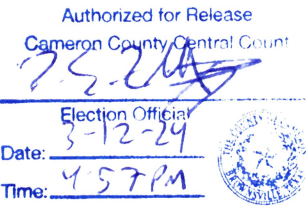 Authorized for Release
Cameron County Central Count
Election Official
Date: 3-12-24
Time: 4:57PM
BROWNSVILLE